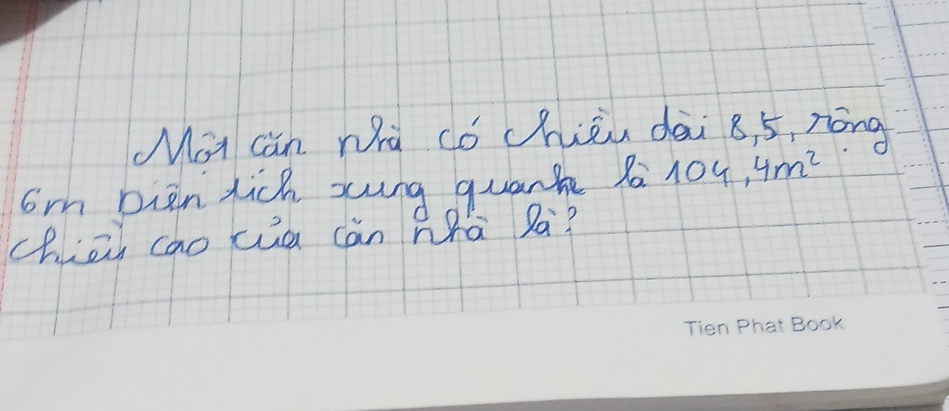 Một căn nhà có chiều dài 8,5, rộng
6m Diện tích xung quanh là 104,4m²
chiều cao của căn nhà là?
Tien Phat Book